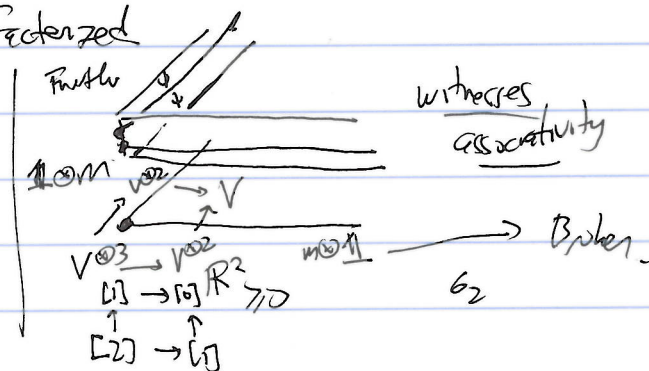 Factorized
witnesses
associativity
𝟙⊗m
V⊗2 → V
V⊗3 → V⊗2
m⊗𝟙 → Broken
[1] → [0] R²≥0
[2] → [1]